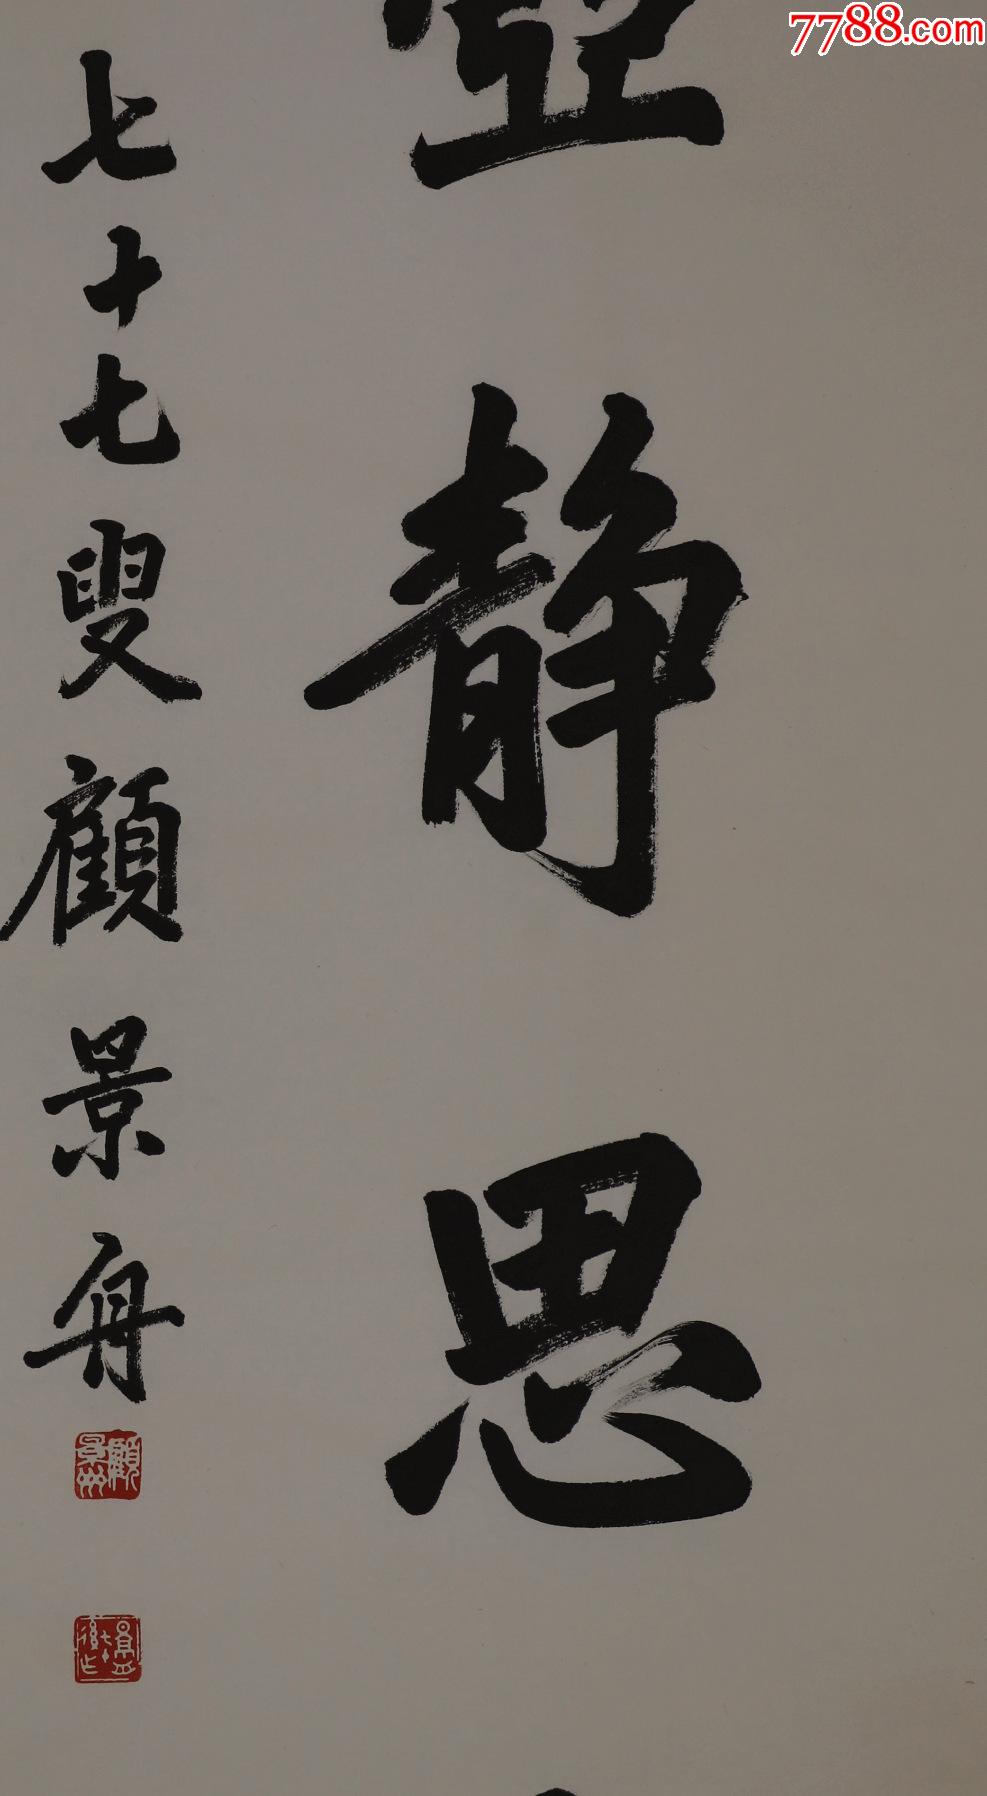 7788.com
靜思
七十七叟顧景舟
顧景舟